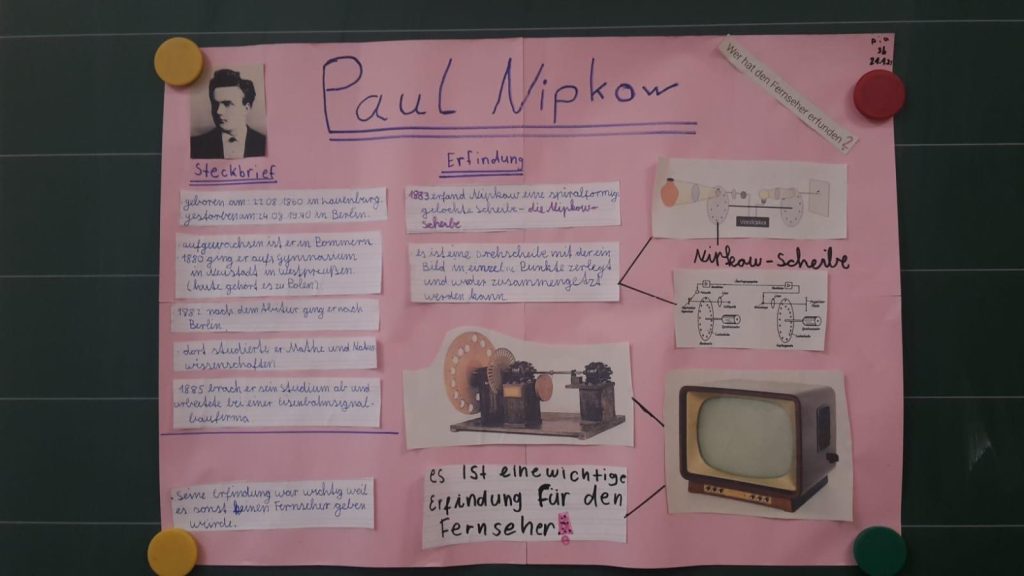 Paul Nipkow
Wer hat den Fernseher erfunden?
Steckbrief
geboren am: 22.08.1860 in Lauenburg.
gestorben am: 24.08.1940 in Berlin.
· aufgewachsen ist er in Pommern
1880 ging er aufs Gymnasium
in Neustadt in Westpreußen.
(heute gehört es zu Polen)
1882 nach dem Abitur ging er nach
Berlin.
· dort studierte er Mathe und Natur
wissenschaften
1885 brach er sein Studium ab und
arbeitete bei einer Eisenbahnsignal-
baufirma
· seine Erfindung war wichtig weil
es sonst keinen Fernseher geben
würde.
Erfindung
1883 erfand Nipkow eine spiralförmig
gelochte Scheibe - die Nipkow-
scheibe
es ist eine Drehscheibe mit der ein
Bild in einzelne Punkte zerlegt
und wieder zusammengetzt
werden kann
Nipkow-Scheibe
es ist eine wichtige
Erfindung für den
Fernseher